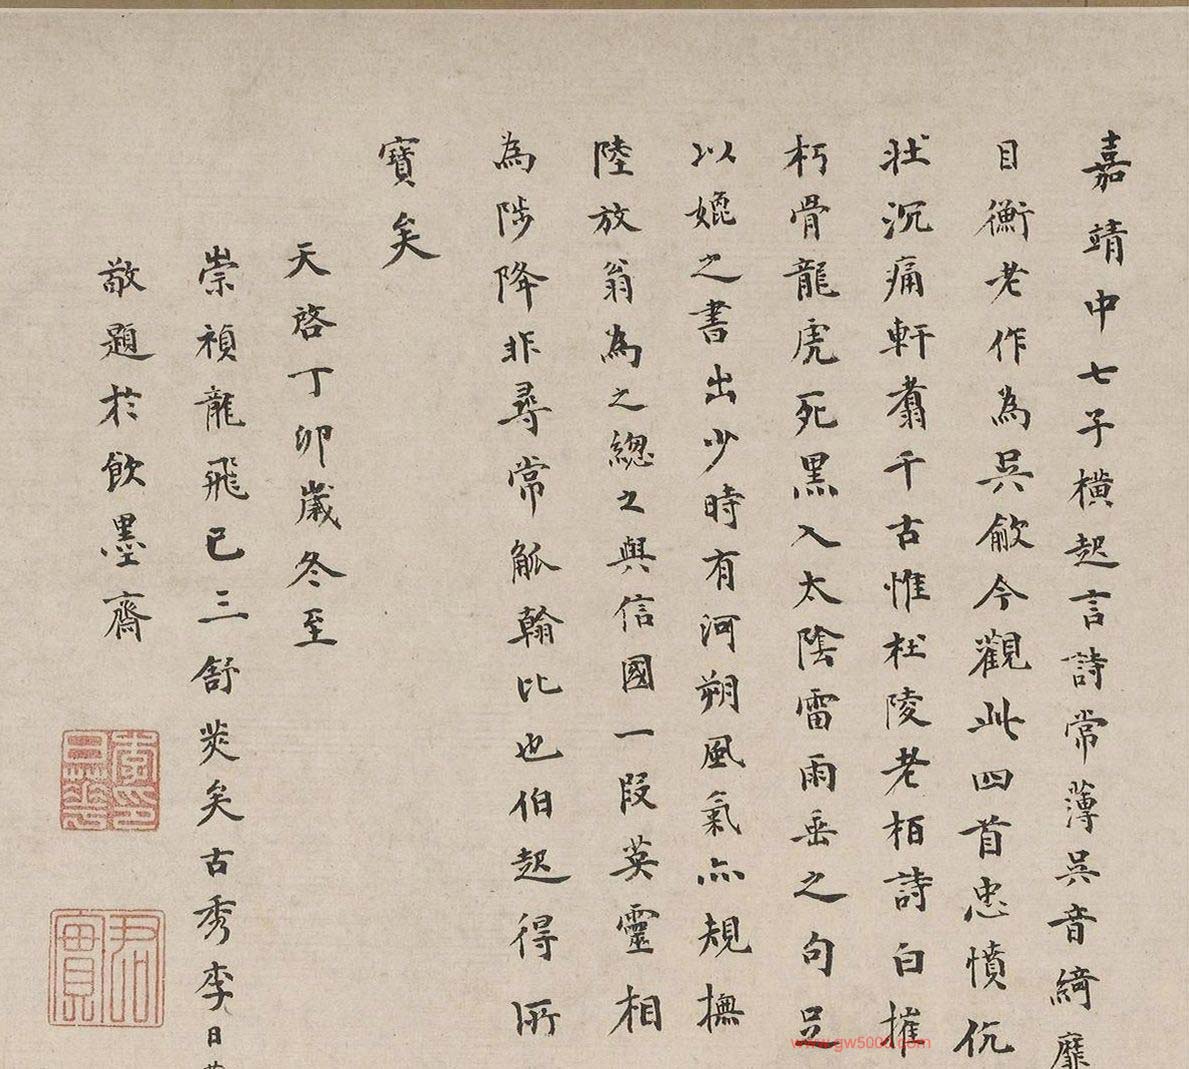 嘉靖中七子橫起言詩常薄吳音綺靡
目衡老作為吳歈今觀此四首忠憤伉
壯沉痛軒翥千古惟杜陵老栢詩白摧
朽骨龍虎死黑入太陰雷雨垂之句足
以媲之書出少時有河朔風氣亦規撫
陸放翁為之總之與信國一段英靈相
為陟降非尋常觚翰比也伯起得所
寶矣
天啓丁卯歲冬至
崇禎龍飛已三舒蓂矣古秀李日華
敬題於飲墨齋
李日華印
君實
www.gw5000.com